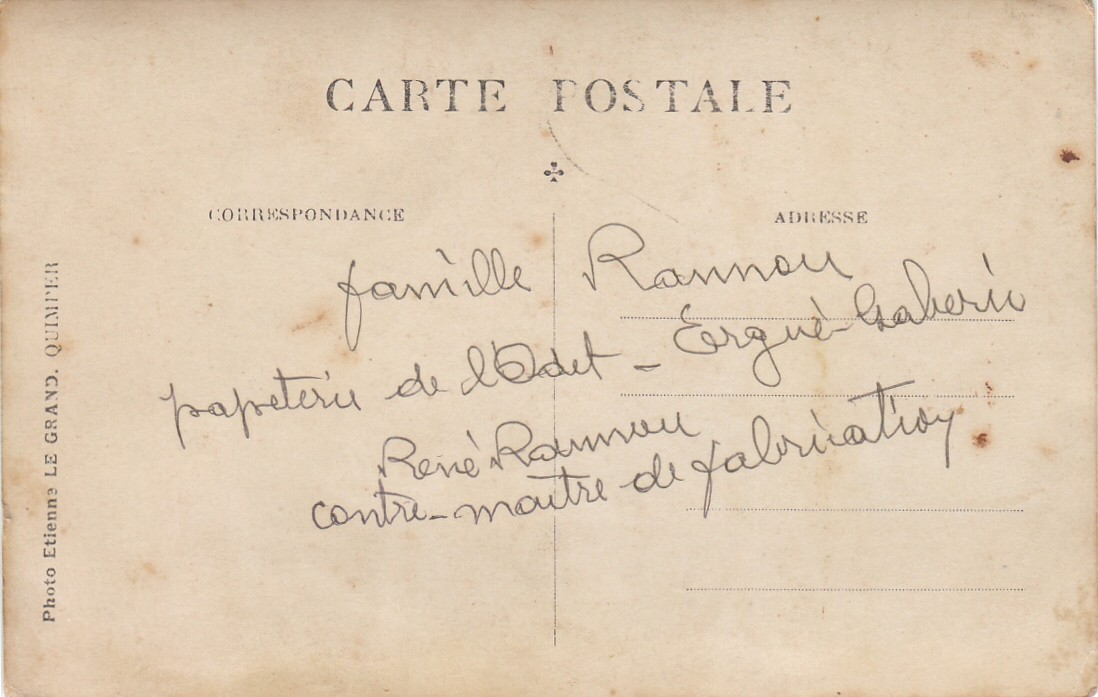 CARTE POSTALE
CORRESPONDANCE
ADRESSE
famille Rannou
papeterie de l'Odet - Ergué-Gaberic
René Rannou
contre-maître de fabrication
Photo Etienne LE GRAND. QUIMPER